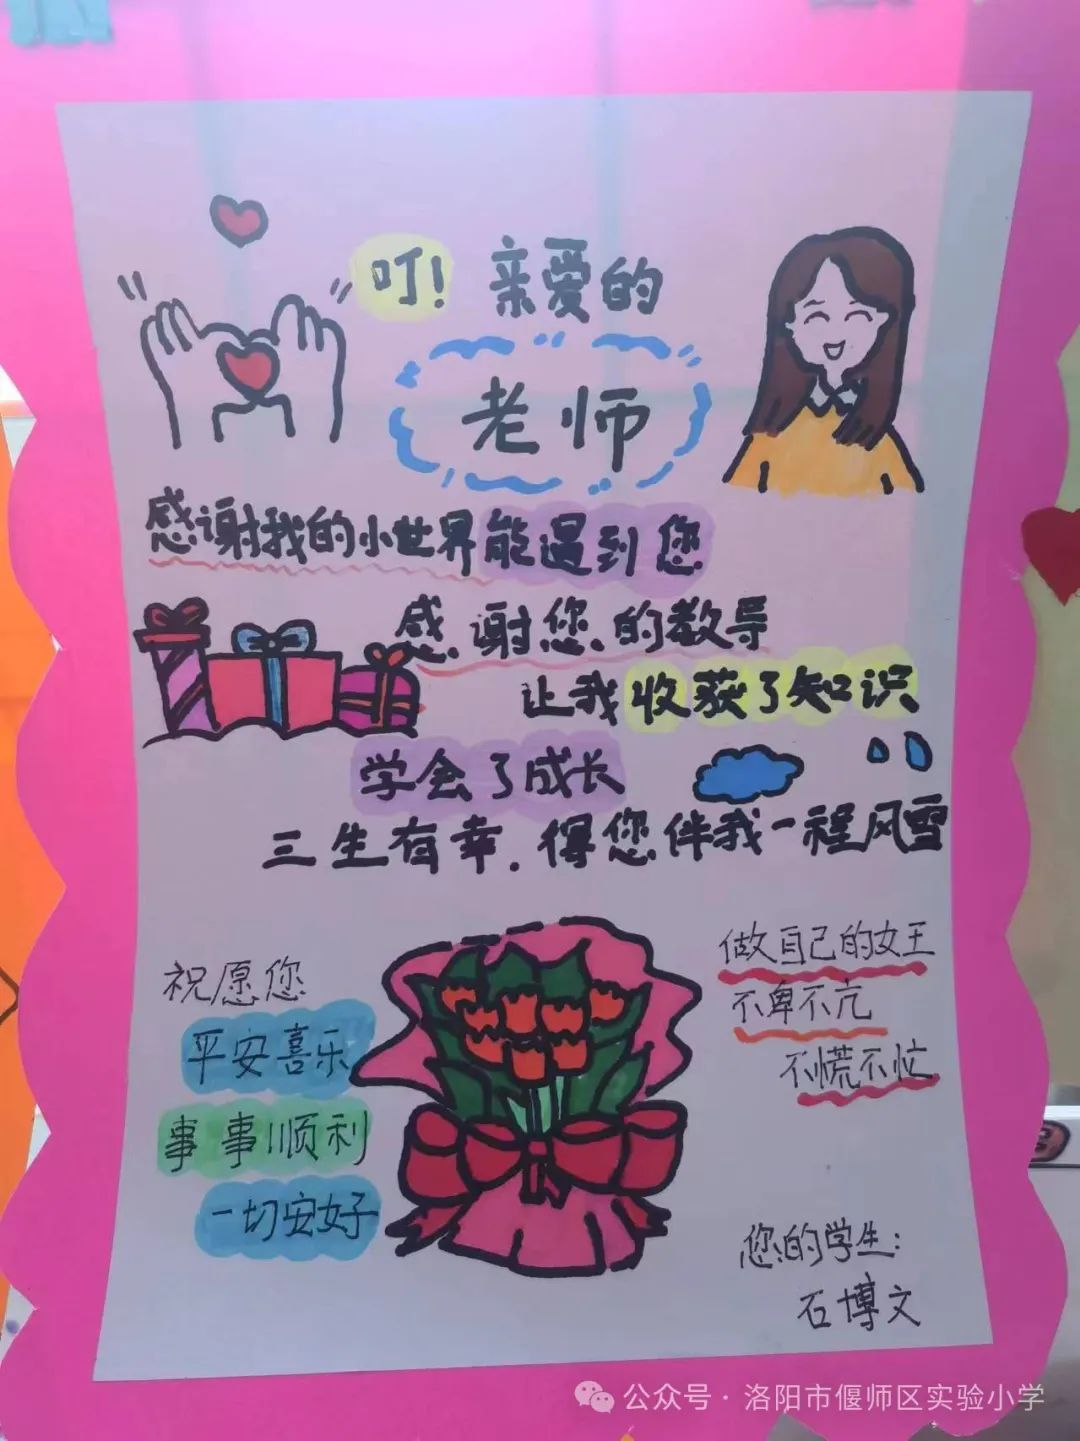 叮！亲爱的
老师
感谢我的小世界能遇到您
感谢您的教导
让我收获了知识
学会了成长
三生有幸.得您伴我一程风雪
祝愿您
平安喜乐
事事顺利
一切安好
做自己的女王
不卑不亢
不慌不忙
您的学生:
石博文
公众号·洛阳市偃师区实验小学